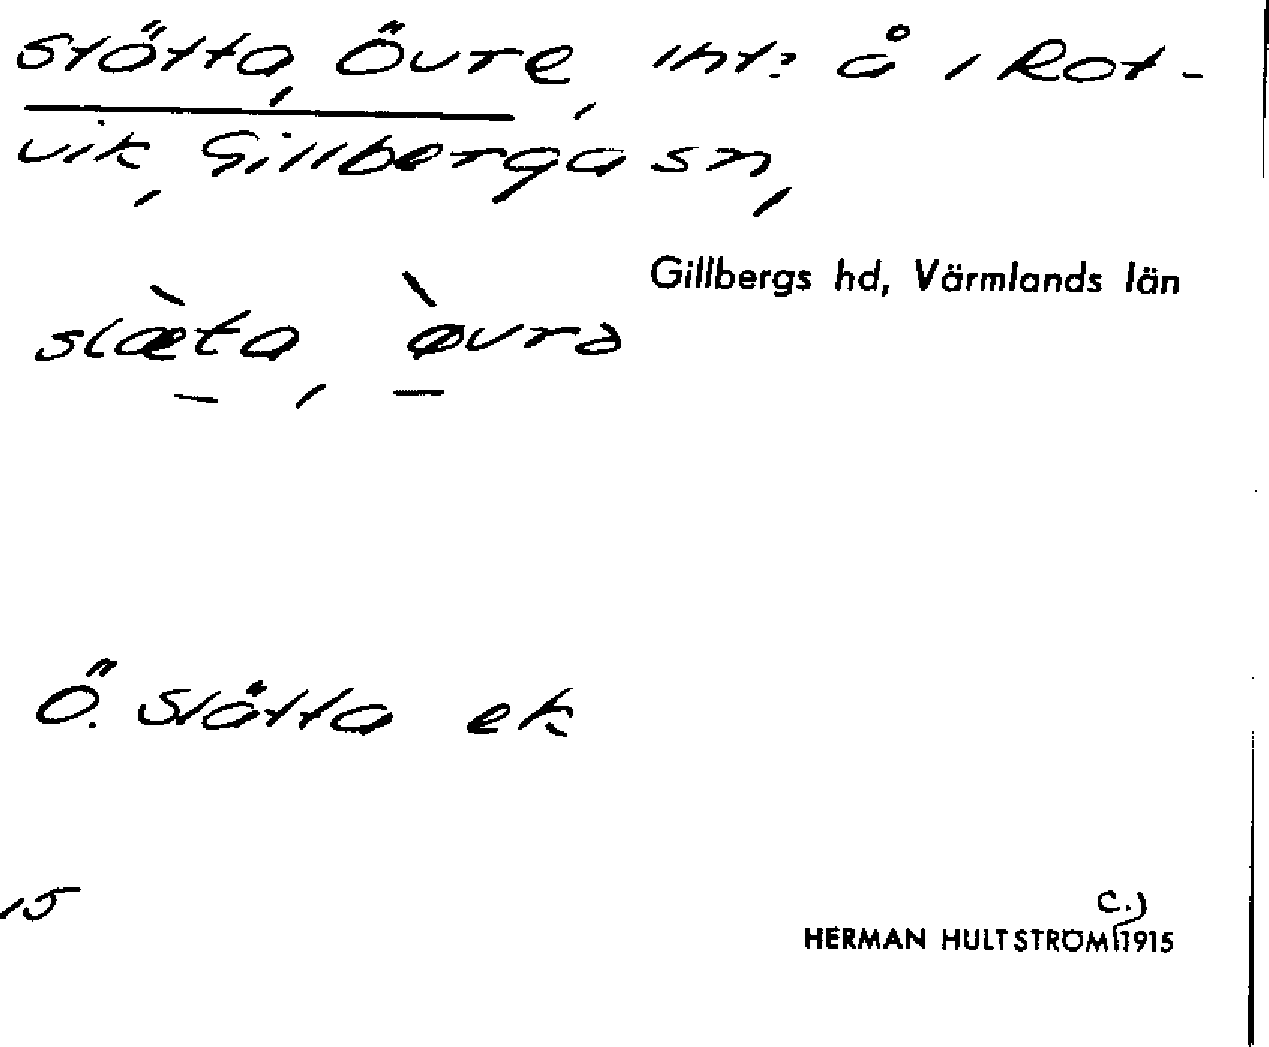 Slätta, Övre, int: å i Rot-
vik, Gillberga sn,
Gillbergs hd, Värmlands län
slæ̀ta, ø̀vrə
Ö. Slätta ek
15
HERMAN HULTSTRÖM (C.) 1915